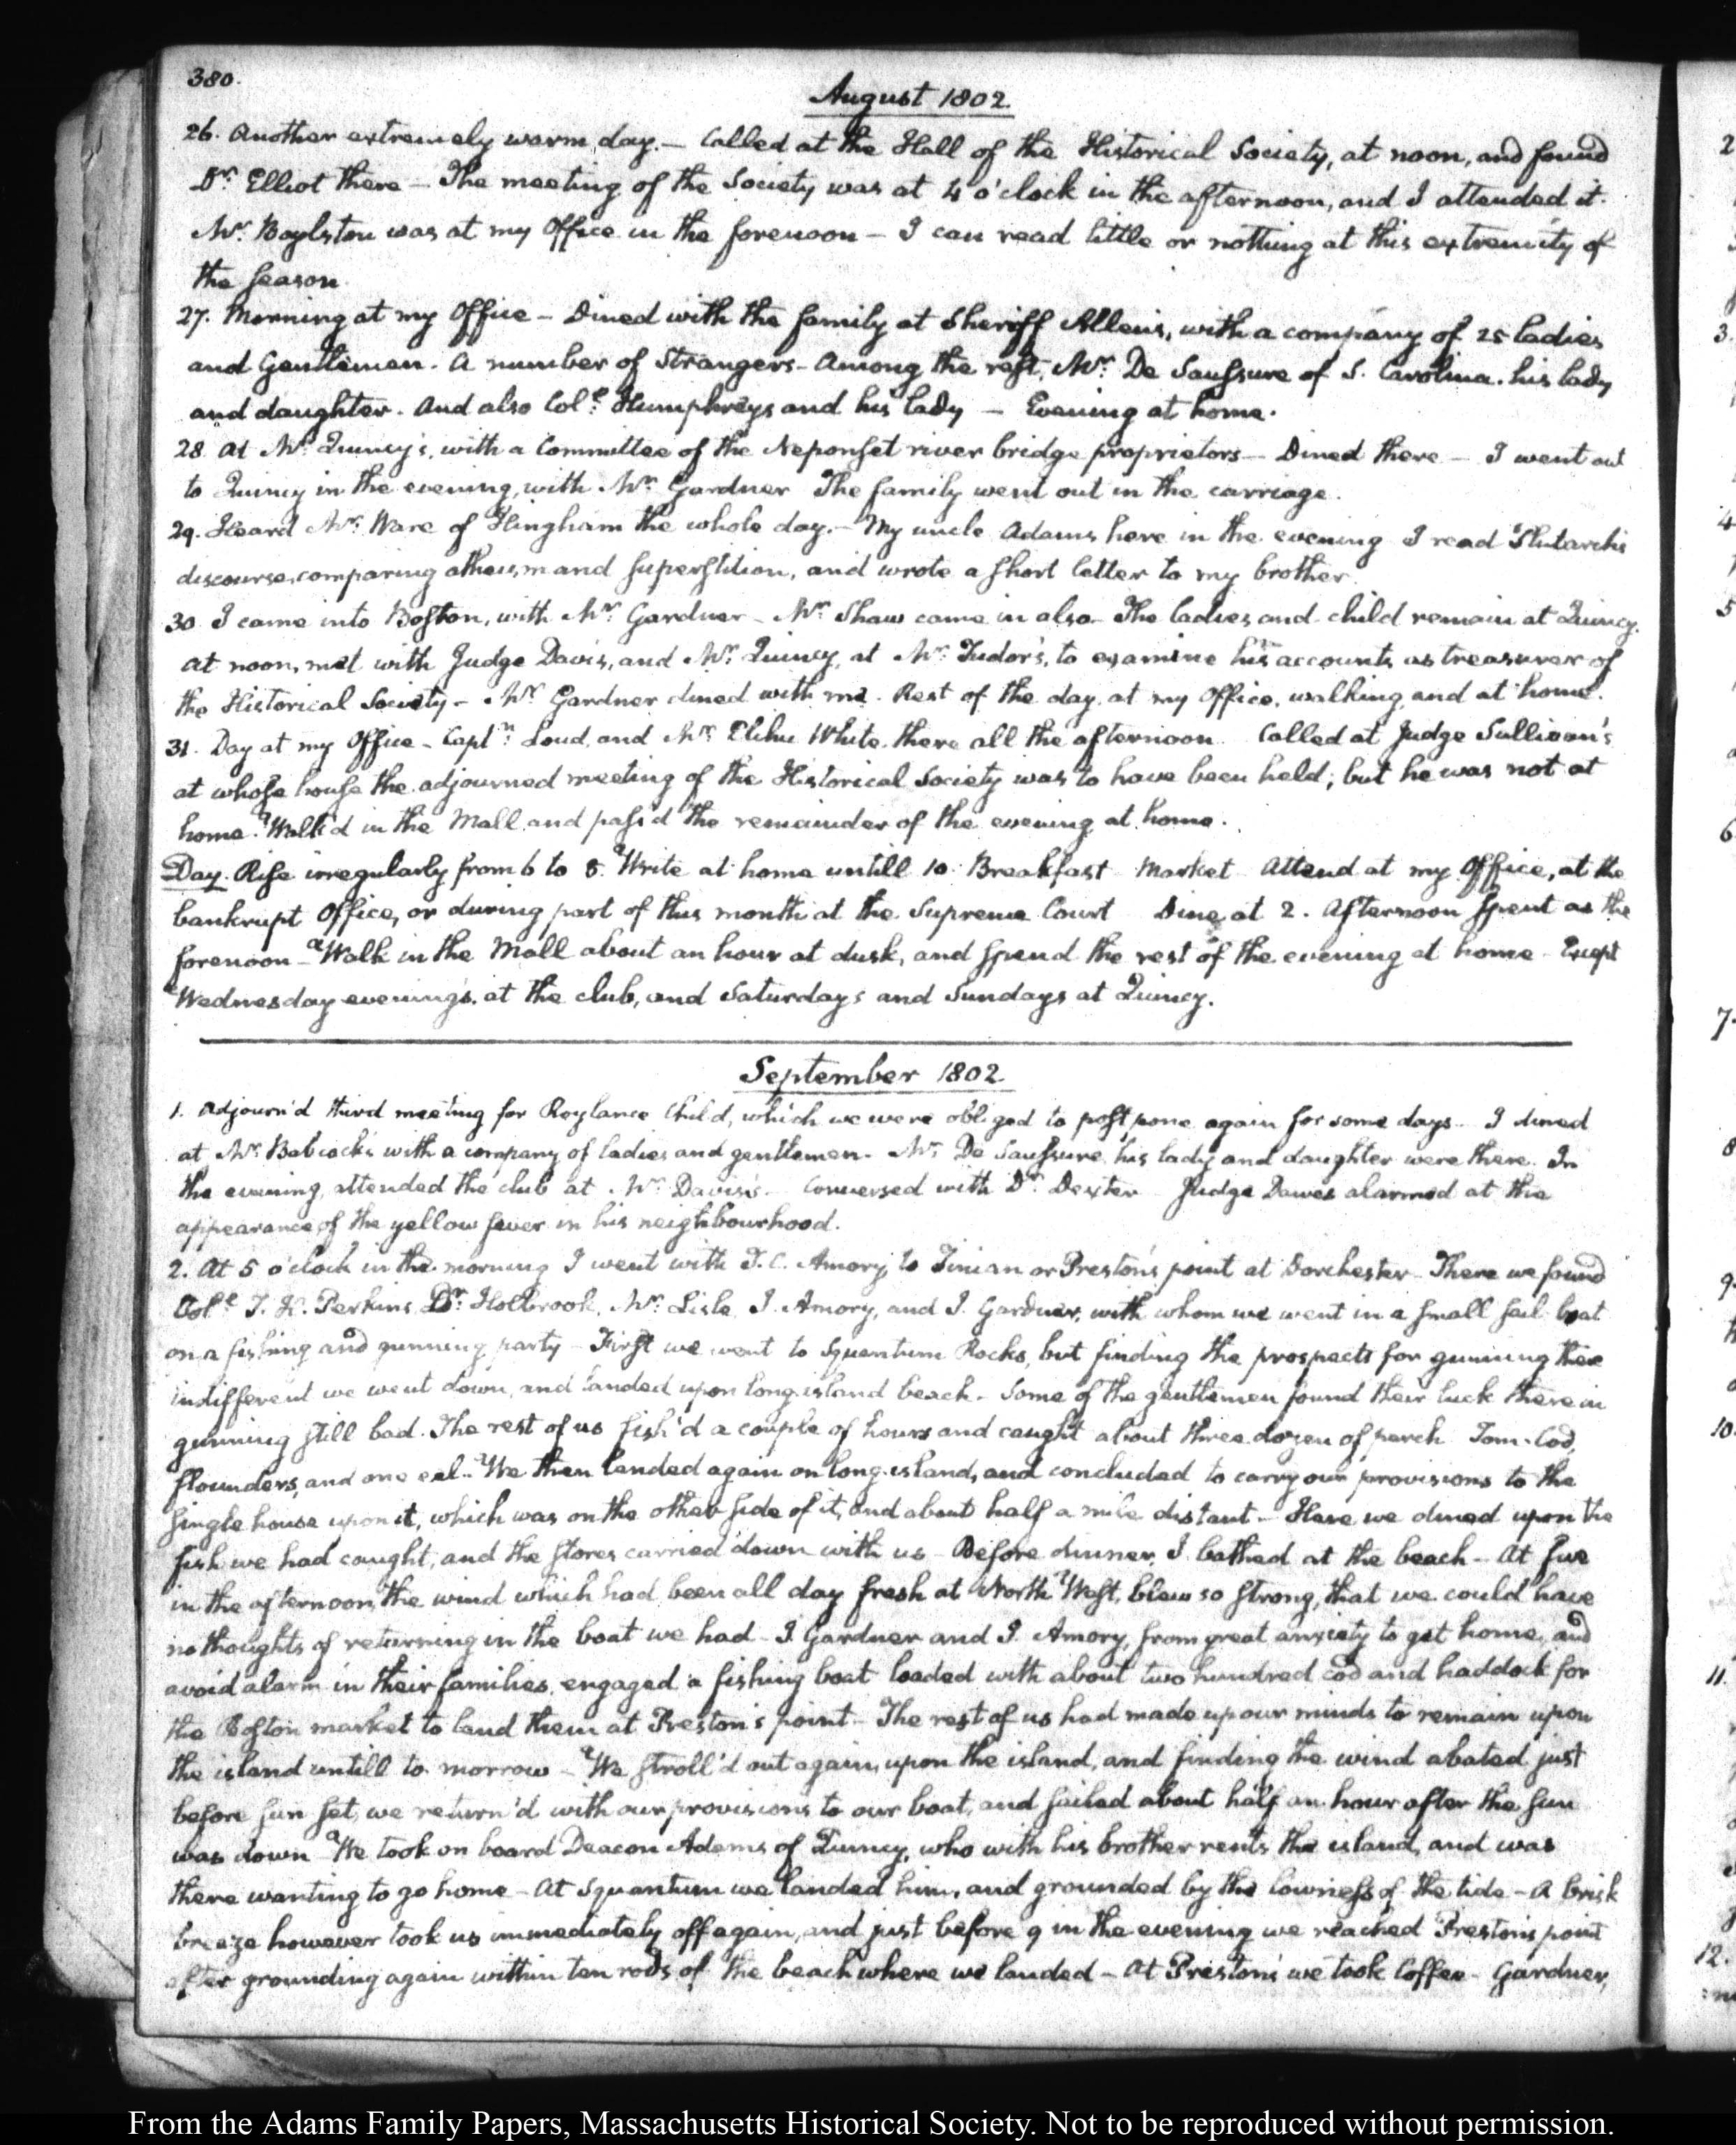 380.
August 1802.
26. Another extremely warm day. — Called at the Hall of the Historical Society, at noon, and found
Dr. Elliot there — The meeting of the Society was at 4 o'clock in the afternoon, and I attended it.
Mr. Boylston was at my Office in the forenoon — I can read little or nothing at this extremity of
the season.
27. Morning at my Office — Dined with the family at Sheriff Allen's, with a company of 25 ladies
and Gentlemen. A number of Strangers — Among the rest, Mr. De Saussure of S. Carolina. his lady
and daughter. And also Coll. Humphreys and his lady — Evening at home.
28. At Mr. Quincy's, with a Committee of the Neponset river bridge proprietors — Dined there — I went out
to Quincy in the evening, with Mr. Gardner The family went out in the carriage.
29. Heard Mr. Ware of Hingham the whole day. — My uncle Adams here in the evening I read Plutarch's
discourse, comparing atheism and superstition, and wrote a short letter to my brother.
30. I came into Boston, with Mr. Gardner — Mr. Shaw came in also — The ladies and child remain at Quincy.
At noon, met with Judge Davis, and Mr. Quincy, at Mr. Tudor's, to examine his accounts as treasurer of
the Historical Society — Mr. Gardner dined with me. Rest of the day, at my Office, walking, and at home.
31. Day at my Office — Captn. Loud, and Mr. Elihu White there all the afternoon Called at Judge Sullivan's
at whose house the adjourned meeting of the Historical Society was to have been held; but he was not at
home. Walk'd in the Mall and pass'd the remainder of the evening at home.
Day. Rise irregularly from 6 to 8. Write at home untill 10. Breakfast Market Attend at my Office, at the
bankrupt Office, or during part of this month at the Supreme Court Dine at 2. Afternoon spent as the
forenoon — Walk in the Mall about an hour at dusk, and spend the rest of the evening at home. Except
Wednesday evenings. at the club, and Saturdays and Sundays at Quincy.
September 1802.
1. Adjourn'd third meeting for Roylance Child, which we were obliged to postpone again for some days — I dined
at Mr. Babcock's with a company of ladies and gentlemen — Mr. De Saussure, his lady and daughter were there. In
the evening, attended the club at Mr. Davis's — Conversed with Dr. Dexter Judge Dawes alarmed at the
appearance of the yellow fever in his neighbourhood.
2. At 5 o'clock in the morning I went with T. C. Amory, to Tinian or Preston's point at Dorchester — There we found
Coll. T. H. Perkins, Dr. Holbrook, Mr. Lisle, J. Amory, and J. Gardner, with whom we went in a small sail boat
on a fishing and gunning party — First we went to Squantum Rocks, but finding the prospects for gunning there
indifferent we went down, and landed upon long-island beach — Some of the gentlemen found their luck there in
gunning still bad. The rest of us fish'd a couple of hours and caught about three dozen of perch Tom-Cod,
flounders, and one eel. We then landed again on long-island, and concluded to carry our provisions to the
single house upon it, which was on the other side of it, and about half a mile distant — Here we dined upon the
fish we had caught, and the stores carried down with us — Before dinner, I bathed at the beach — At five
in the afternoon, the wind which had been all day fresh at North West, blew so strong, that we could have
no thoughts of returning in the boat we had — J. Gardner and J. Amory, from great anxiety to get home, and
avoid alarm in their families, engaged a fishing boat loaded with about two hundred cod and haddock for
the Boston market to land them at Preston's point — The rest of us had made up our minds to remain upon
the island untill to-morrow — We stroll'd out again, upon the island, and finding the wind abated just
before sun set, we return'd with our provisions to our boat, and sailed about half an hour after the sun
was down We took on board Deacon Adams of Quincy, who with his brother rents the island, and was
there wanting to go home — At Squantum we landed him, and grounded by the lowness of the tide — A brisk
breeze however took us immediately off again, and just before 9 in the evening we reached Preston's point
after grounding again within ten rods of the beach where we landed — At Preston's we took Coffee — Gardner,
From the Adams Family Papers, Massachusetts Historical Society. Not to be reproduced without permission.